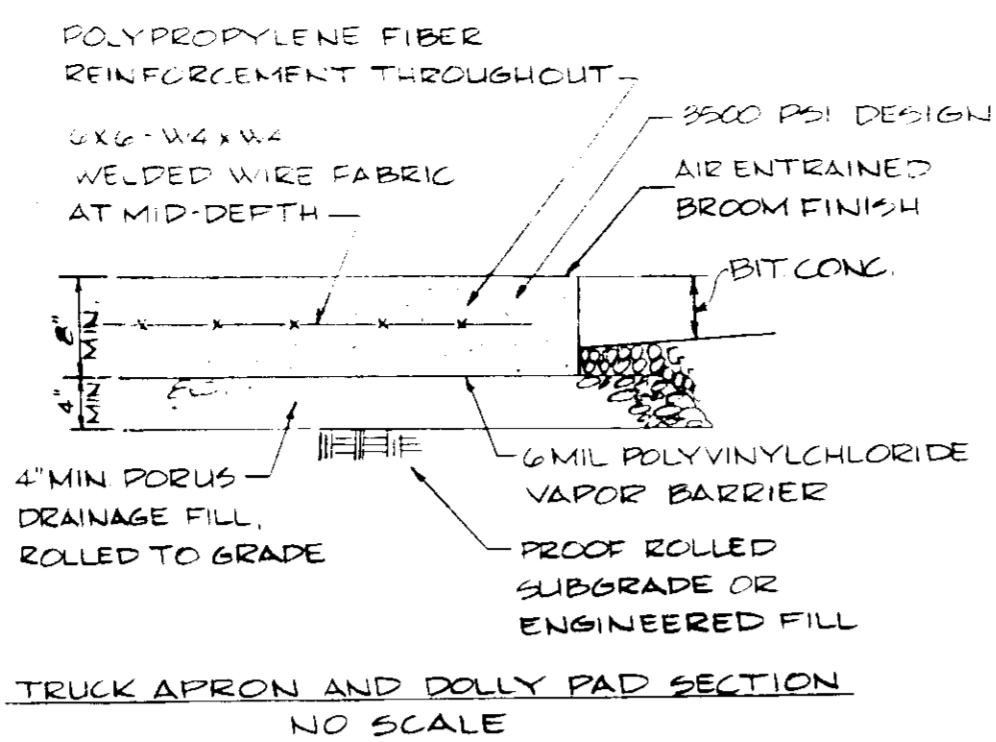 POLYPROPYLENE FIBER
REINFORCEMENT THROUGHOUT
3500 PSI DESIGN
6X6-W4xW4
WELDED WIRE FABRIC
AT MID-DEPTH
AIR ENTRAINED
BROOM FINISH
BIT. CONC.
8"
MIN.
4"
MIN
4" MIN PORUS
DRAINAGE FILL,
ROLLED TO GRADE
6 MIL POLYVINYLCHLORIDE
VAPOR BARRIER
PROOF ROLLED
SUBGRADE OR
ENGINEERED FILL
TRUCK APRON AND DOLLY PAD SECTION
NO SCALE